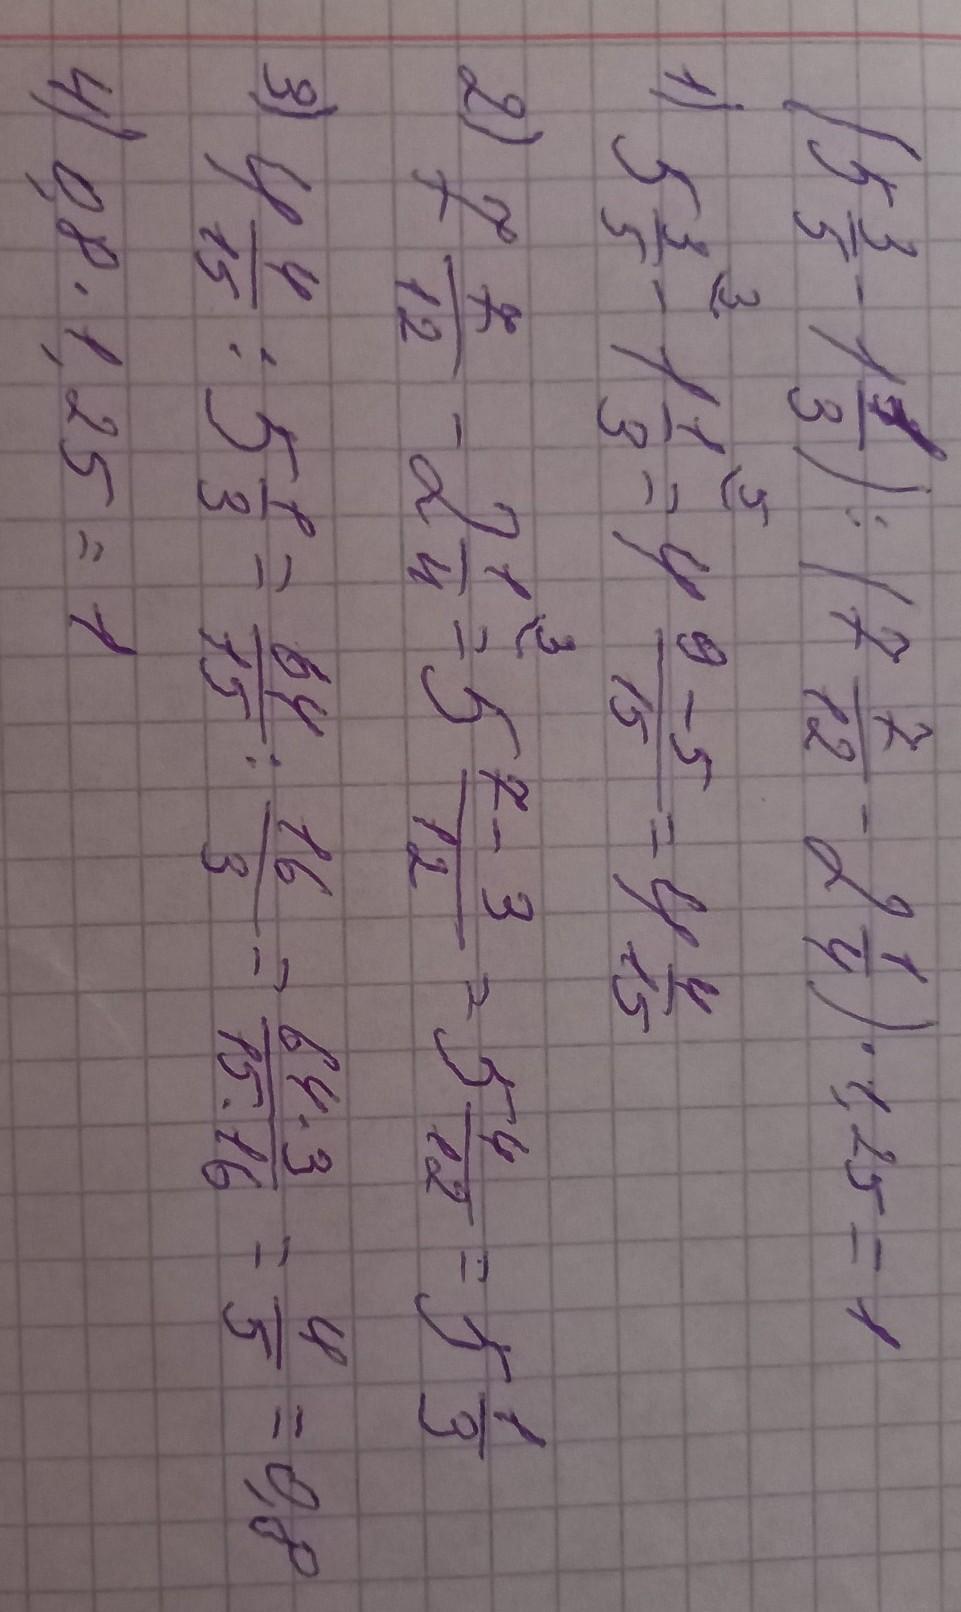 (5 3/5 - 1 1/3) : (7 7/12 - 2 1/4) · 1,25 = 1
1) 5 3/5 ³ - 1 1/3 ⁵ = 4 (9-5)/15 = 4 4/15
2) 7 7/12 - 2 1/4 ³ = 5 (7-3)/12 = 5 4/12 = 5 1/3
3) 4 4/15 : 5 1/3 = 64/15 : 16/3 = (64·3)/(15·16) = 4/5 = 0,8
4) 0,8 · 1,25 = 1